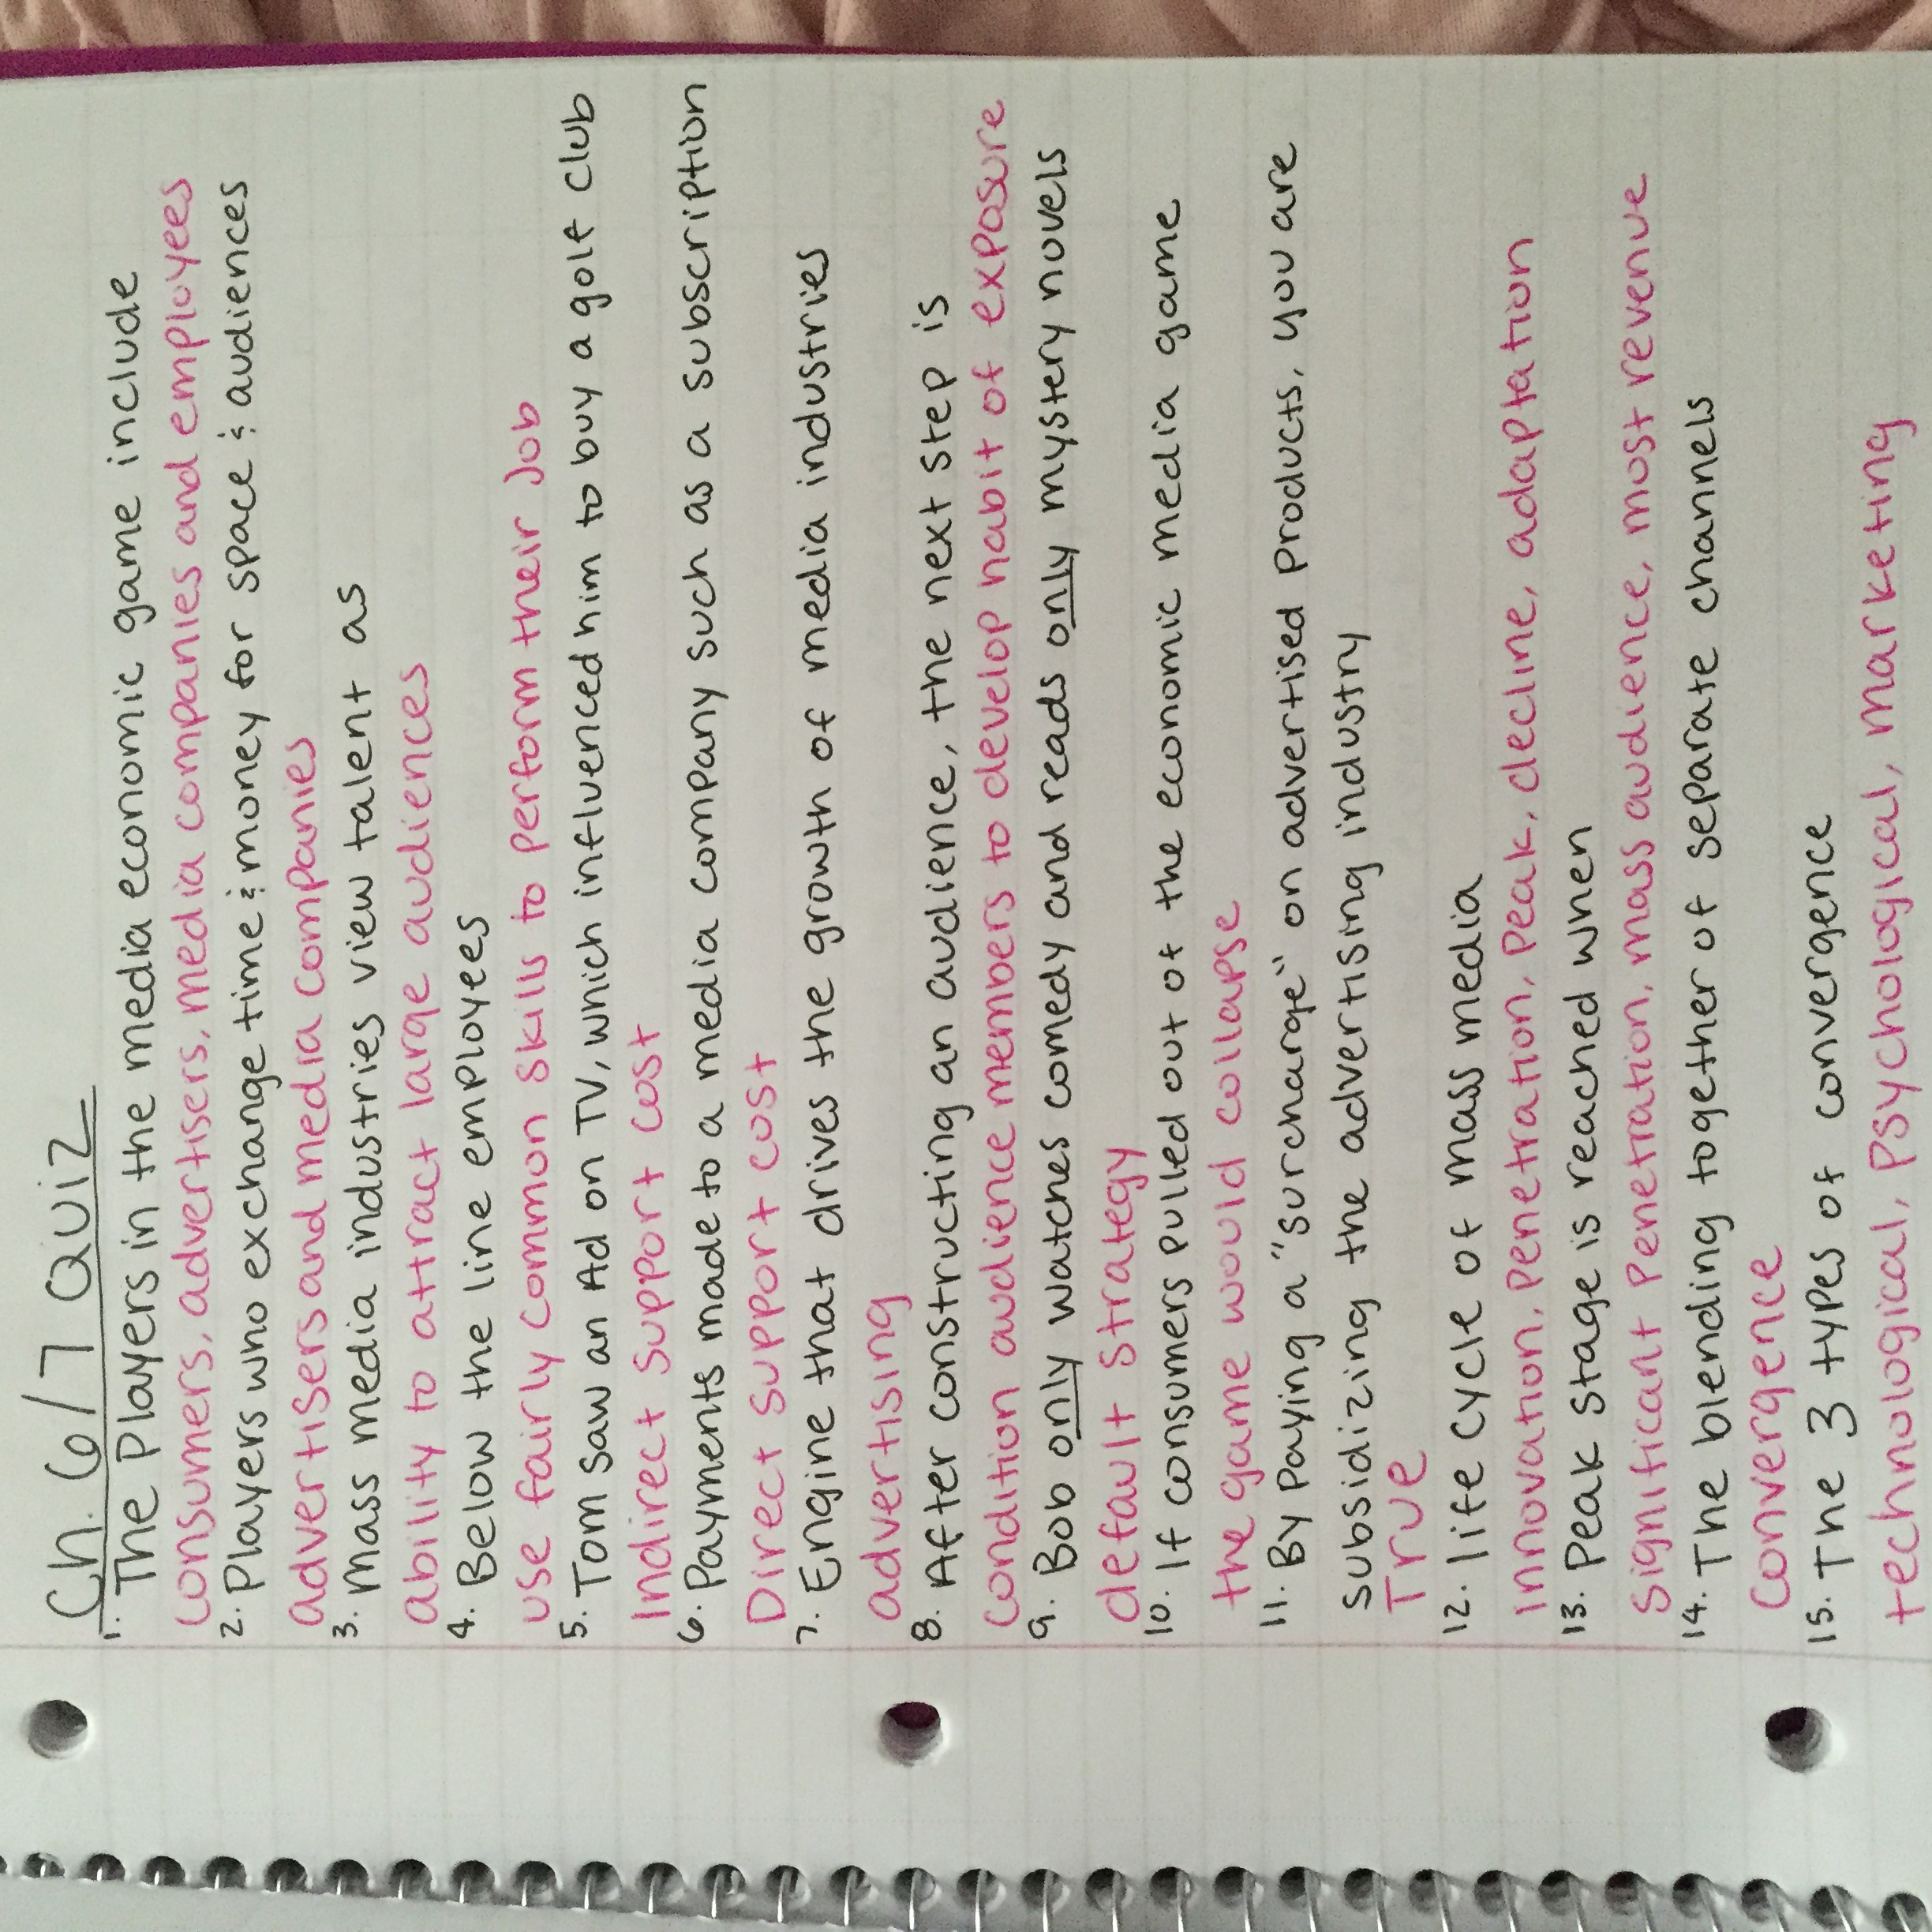 Ch. 6/7 Quiz
1. The players in the media economic game include
consumers, advertisers, media companies and employees
2. Players who exchange time & money for space & audiences
advertisers and media companies
3. Mass media industries view talent as
ability to attract large audiences
4. Below the line employees
use fairly common skills to perform their job
5. Tom saw an Ad on TV, which influenced him to buy a golf club
Indirect support cost
6. Payments made to a media company such as a subscription
Direct support cost
7. Engine that drives the growth of media industries
advertising
8. After constructing an audience, the next step is
condition audience members to develop habit of exposure
9. Bob only watches comedy and reads only mystery novels
default strategy
10. If consumers pulled out of the economic media game
the game would collapse
11. By paying a "surcharge" on advertised products, you are
subsidizing the advertising industry
True
12. life cycle of mass media
innovation, penetration, peak, decline, adaptation
13. Peak stage is reached when
significant penetration, mass audience, most revenue
14. The blending together of separate channels
Convergence
15. The 3 types of convergence
technological, psychological, marketing